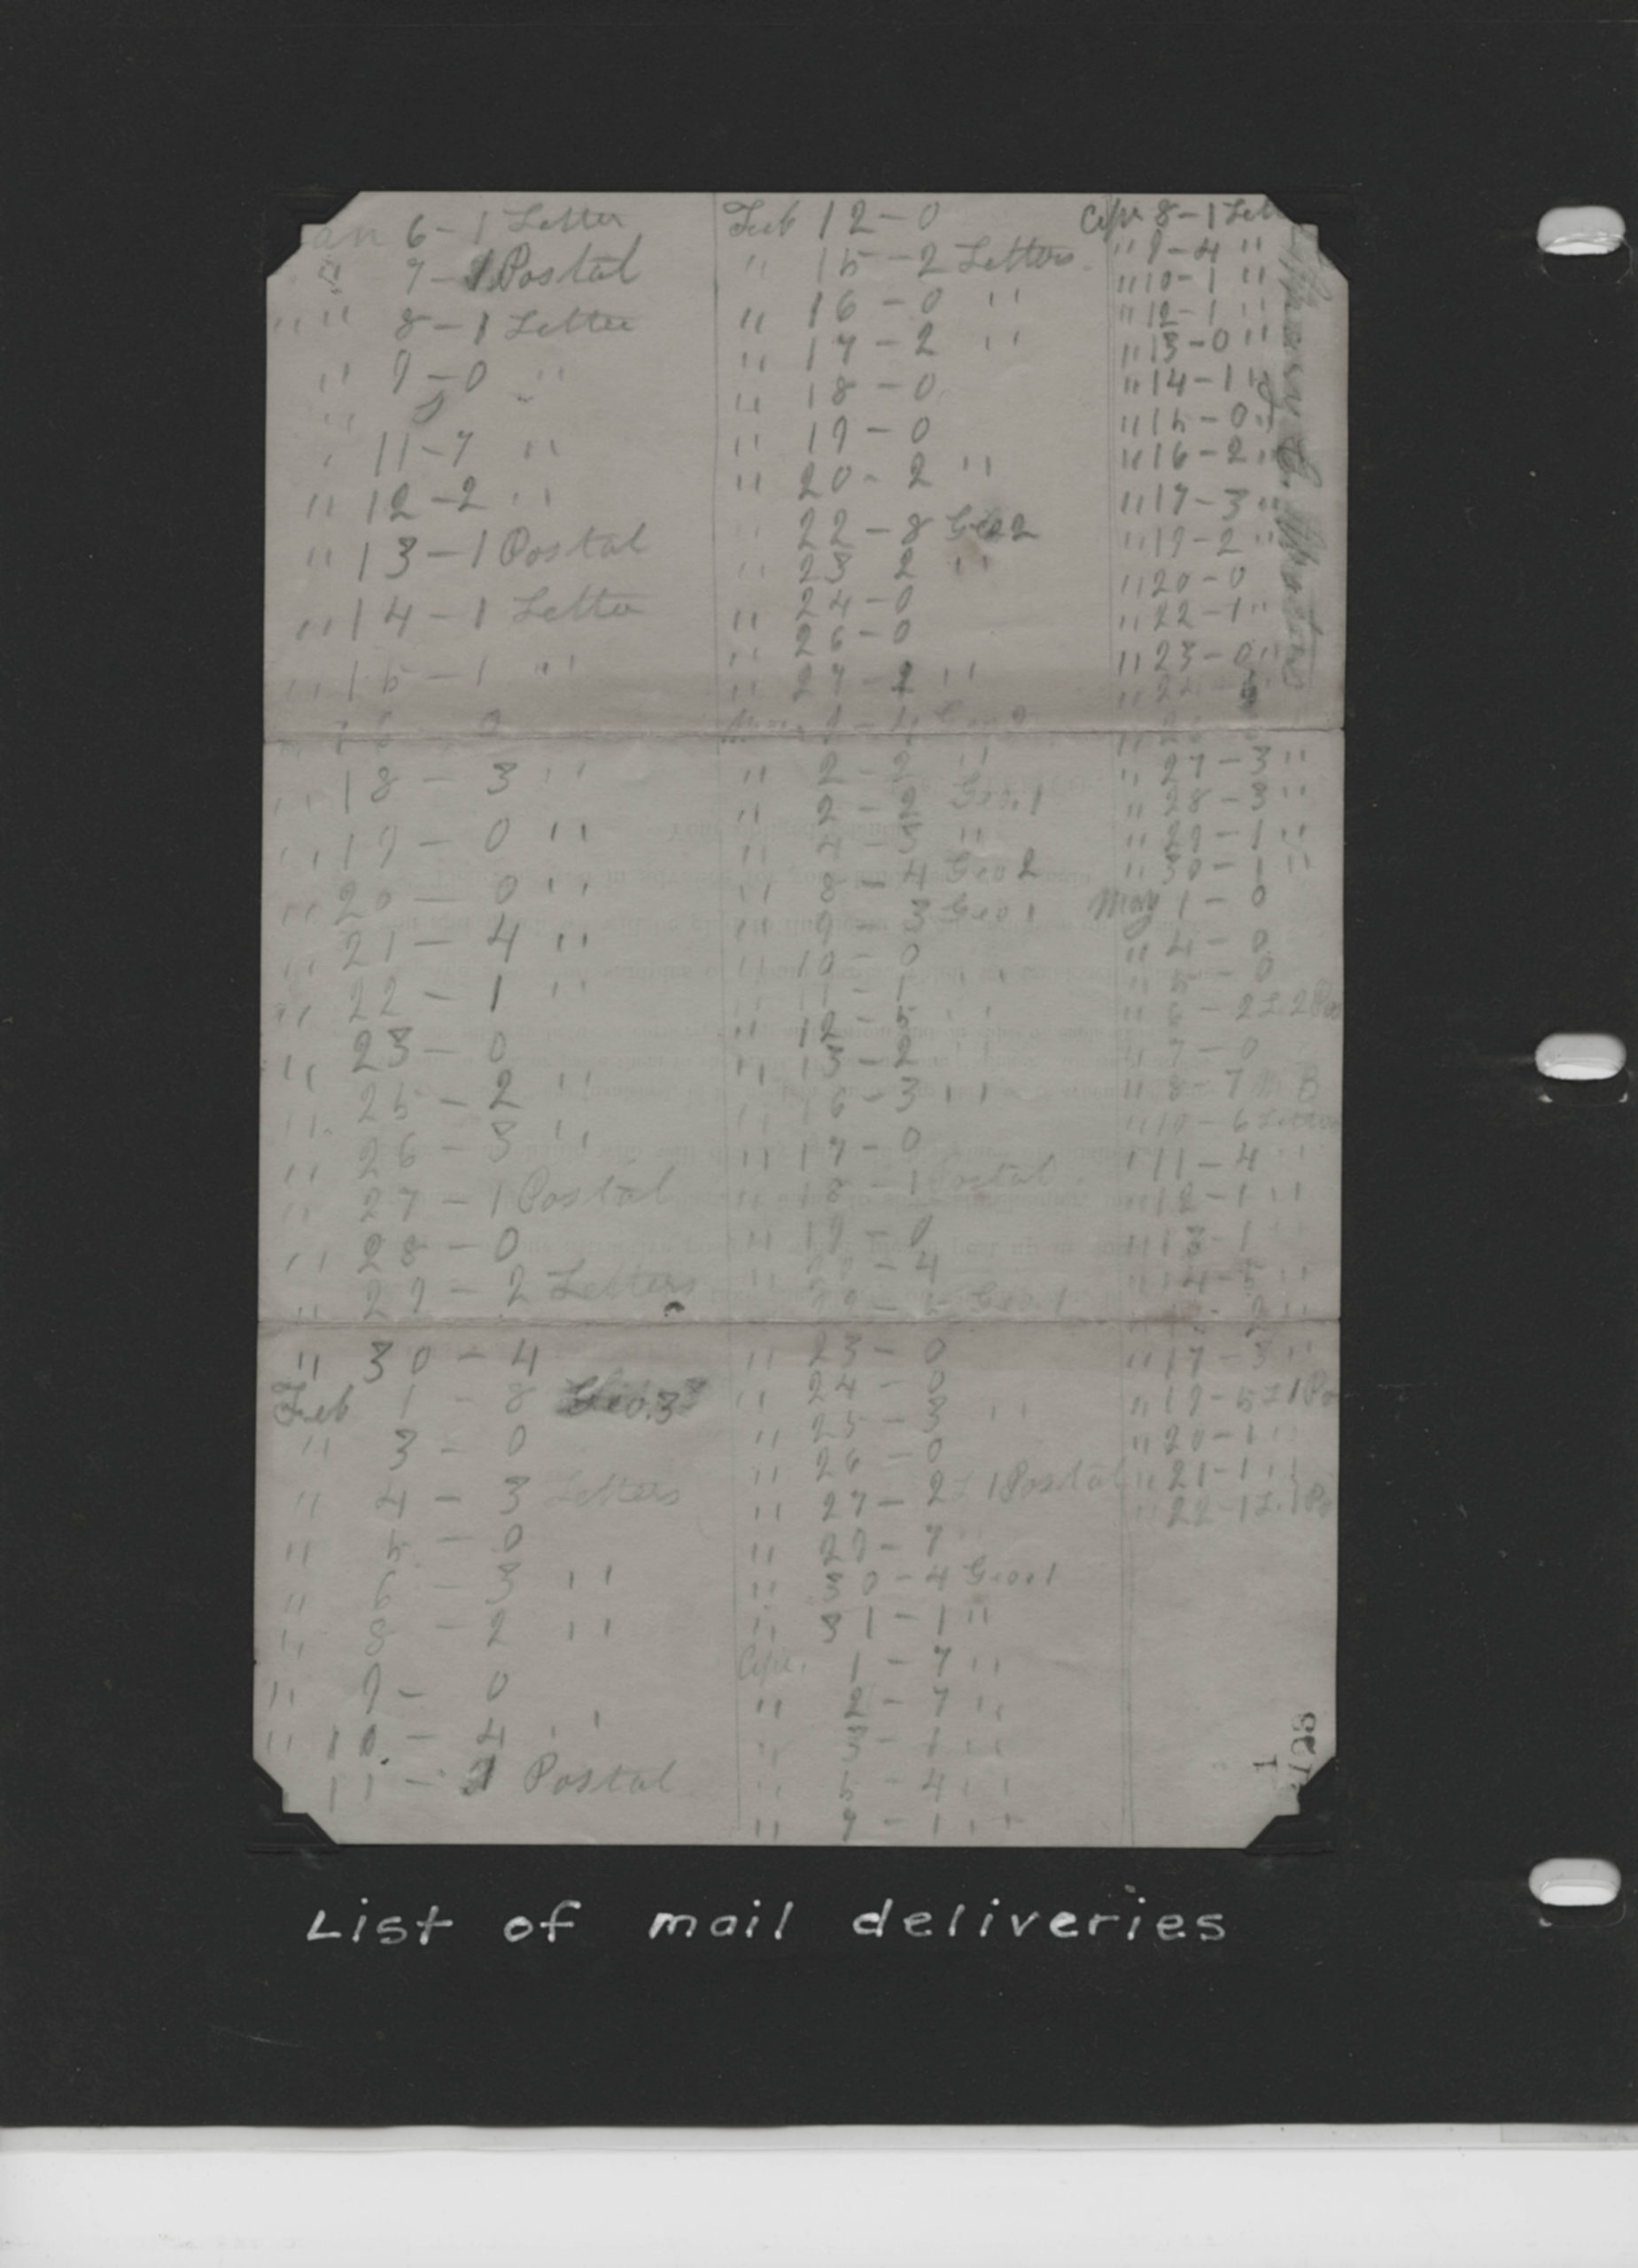 an 6 - 1 Letter
" 7 - 1 Postal
" " 8 - 1 Letter
" 9 - 0 "
" 11 - 7 "
" 12 - 2 "
" 13 - 1 Postal
" 14 - 1 Letter
" 15 - 1 "
" 16 - 0
" 18 - 3 "
" 19 - 0 "
" 20 - 0 "
" 21 - 4 "
" 22 - 1 "
" 23 - 0
" 25 - 2 "
" 26 - 3 "
" 27 - 1 Postal
" 28 - 0
" 29 - 2 Letters
" 30 - 4
Feb 1 - 8 Geo. 3
" 3 - 0
" 4 - 3 Letters
" 5 - 0
" 6 - 3 "
" 8 - 2 "
" 9 - 0
" 10 - 4 "
11 - 1 Postal
Feb 12 - 0
" 15 - 2 Letters
" 16 - 0 "
" 17 - 2 "
" 18 - 0
" 19 - 0
" 20 - 2 "
" 22 - 8 Geo 2
" 23 2 "
" 24 - 0
" 26 - 0
" 27 - 2 "
" 2 - 2 "
" 2 - 2 Geo. 1
" 4 - 5 "
" 8 - 4 Geo 2
" 9 - 3 Geo 1
" 10 - 0
" 11 - 1 "
" 12 - 5 "
" 13 - 2
" 16 - 3 "
" 17 - 0
" 18 - 1 Postal
" 19 - 0
" 20 - 4
Geo. 1
" 23 - 0
" 24 - 0
" 25 - 3 "
" 26 - 0
" 27 - 2 L 1 Postal
" 29 - 7 "
" 30 - 4 Geo. 1
" 31 - 1 "
Apr. 1 - 7 "
" 2 - 7 "
" 3 - 1 "
" 5 - 4 "
" 7 - 1 "
Apr 8 - 1 Lett
" 9 - 4 "
" 10 - 1 "
" 12 - 1 "
" 13 - 0 "
" 14 - 1 "
" 15 - 0 "
" 16 - 2 "
" 17 - 3 "
" 19 - 2 "
" 20 - 0
" 22 - 1 "
" 23 - 0 "
" 27 - 3 "
" 28 - 3 "
" 29 - 1 "
" 30 - 1 "
May 1 - 0
" 4 - 0
" 5 - 0
" 6 - 2 L 2 Pos
" 7 - 0
" 8 - 7
" 10 - 6 Letters
" 11 - 4 "
" 12 - 1 "
" 13 - 1
" 14 - 5 "
" 17 - 3 "
" 19 - 5 L 1 Po
" 20 - 1 "
" 21 - 1 "
" 22 - 1 L. 1 Po
List of mail deliveries